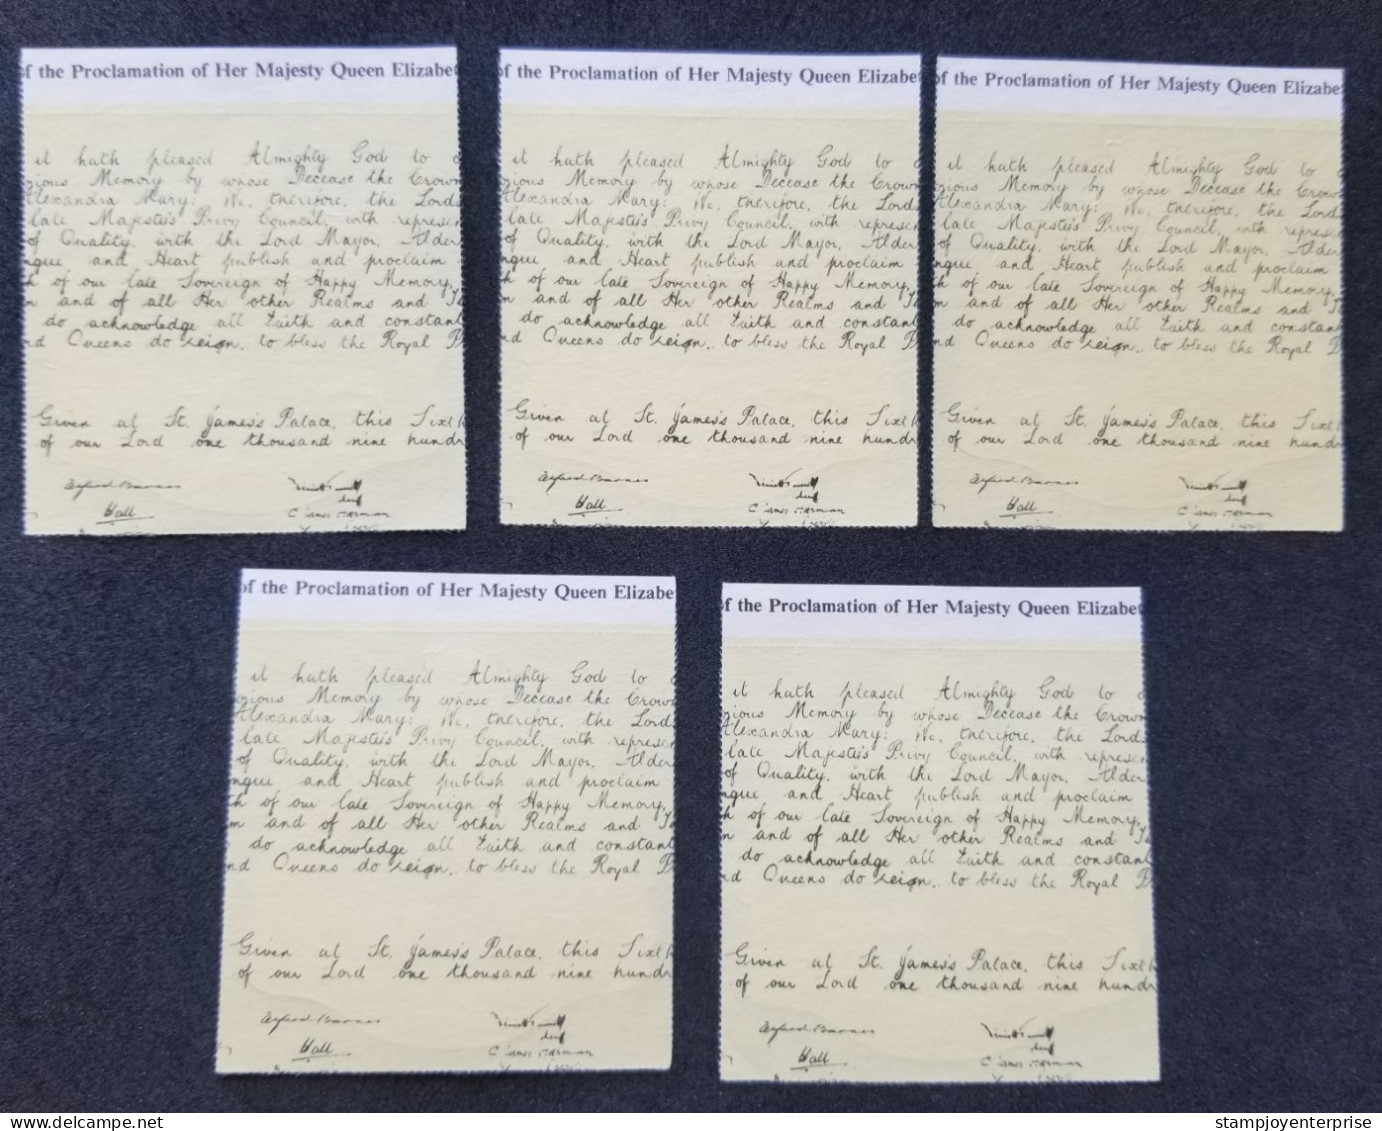 of the Proclamation of Her Majesty Queen Elizabe
it hath pleased Almighty God to
Memory by whose Decease the Crown
Alexandra Mary: We, therefore, the Lords
late Majesty's Privy Council, with represen
of Quality, with the Lord Mayor, Alder
ngue and Heart publish and proclaim
h of our late Sovereign of Happy Memory,
and of all Her other Realms and
do acknowledge all Faith and constan
nd Queens do reign, to bless the Royal
Given at St. James's Palace, this Sixth
of our Lord one thousand nine hundr
Alfred Barnes
Hall
of the Proclamation of Her Majesty Queen Elizabe
it hath pleased Almighty God to
Memory by whose Decease the Crown
Alexandra Mary: We, therefore, the Lords
late Majesty's Privy Council, with represen
of Quality, with the Lord Mayor, Alder
ngue and Heart publish and proclaim
h of our late Sovereign of Happy Memory,
and of all Her other Realms and
do acknowledge all Faith and constan
nd Queens do reign, to bless the Royal
Given at St. James's Palace, this Sixth
of our Lord one thousand nine hundr
Alfred Barnes
Hall
of the Proclamation of Her Majesty Queen Elizabe
it hath pleased Almighty God to
Memory by whose Decease the Crown
Alexandra Mary: We, therefore, the Lord
late Majesty's Privy Council, with represen
of Quality, with the Lord Mayor, Alder
ngue and Heart publish and proclaim
h of our late Sovereign of Happy Memory,
and of all Her other Realms and
do acknowledge all Faith and constan
nd Queens do reign, to bless the Royal
Given at St. James's Palace, this Sixth
of our Lord one thousand nine hundr
Alfred Barnes
Hall
of the Proclamation of Her Majesty Queen Elizabe
it hath pleased Almighty God to
Memory by whose Decease the Crown
Alexandra Mary: We, therefore, the Lords
late Majesty's Privy Council, with represen
of Quality, with the Lord Mayor, Alder
ngue and Heart publish and proclaim
h of our late Sovereign of Happy Memory,
and of all Her other Realms and
do acknowledge all Faith and constan
nd Queens do reign, to bless the Royal
Given at St. James's Palace, this Sixth
of our Lord one thousand nine hundr
Alfred Barnes
Hall
of the Proclamation of Her Majesty Queen Elizabe
it hath pleased Almighty God to
Memory by whose Decease the Crown
Alexandra Mary: We, therefore, the Lord
late Majesty's Privy Council, with represen
of Quality, with the Lord Mayor, Alder
ngue and Heart publish and proclaim
h of our late Sovereign of Happy Memory,
and of all Her other Realms and
do acknowledge all Faith and constan
nd Queens do reign, to bless the Royal
Given at St. James's Palace, this Sixth
of our Lord one thousand nine hundr
Alfred Barnes
Hall
delcampe.net
stampjoyenterprise